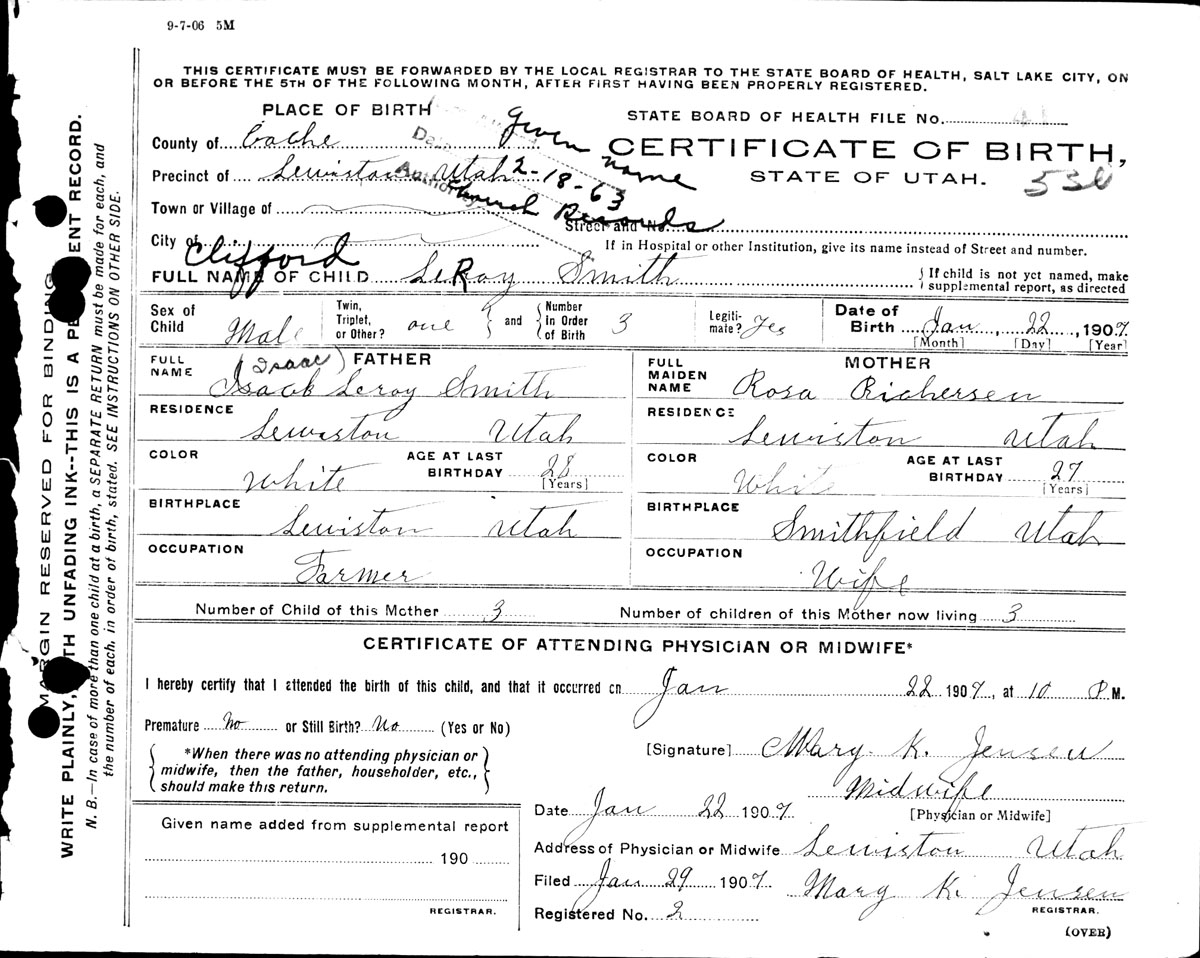 9-7-06 5M
THIS CERTIFICATE MUST BE FORWARDED BY THE LOCAL REGISTRAR TO THE STATE BOARD OF HEALTH, SALT LAKE CITY, ON
OR BEFORE THE 5TH OF THE FOLLOWING MONTH, AFTER FIRST HAVING BEEN PROPERLY REGISTERED.
PLACE OF BIRTH
Given name
STATE BOARD OF HEALTH FILE No.
County of Cache
CERTIFICATE OF BIRTH,
Precinct of Lewiston Utah
2-18-63
STATE OF UTAH.
530
Authority
Church Records
Town or Village of
Street and No.
City of
If in Hospital or other Institution, give its name instead of Street and number.
Clifford
FULL NAME OF CHILD LeRoy Smith
If child is not yet named, make
supplemental report, as directed
Sex of Child Male
Twin, Triplet, or Other? one and Number In Order of Birth 3
Legiti-mate? Yes
Date of Birth Jan, 22, 1907
[Month] [Day] [Year]
FATHER
FULL NAME (Isaac) Isaak Leroy Smith
RESIDENCE Lewiston Utah
COLOR White
AGE AT LAST BIRTHDAY 28 [Years]
BIRTHPLACE Lewiston Utah
OCCUPATION Farmer
MOTHER
FULL MAIDEN NAME Rosa Richersen
RESIDENCE Lewiston Utah
COLOR Whit
AGE AT LAST BIRTHDAY 27 [Years]
BIRTHPLACE Smithfield Utah
OCCUPATION Wife
Number of Child of this Mother 3
Number of children of this Mother now living 3
CERTIFICATE OF ATTENDING PHYSICIAN OR MIDWIFE*
I hereby certify that I attended the birth of this child, and that it occurred on Jan 22 1907, at 10 P M.
Premature No or Still Birth? No (Yes or No)
*When there was no attending physician or
midwife, then the father, householder, etc.,
should make this return.
[Signature] Mary K. Jensen
Midwife
[Physician or Midwife]
Date Jan 22 1907
Given name added from supplemental report
190
REGISTRAR.
Address of Physician or Midwife Lewiston Utah
Filed Jan 29 1907 Mary K. Jensen
REGISTRAR.
Registered No. 2
(OVER)
MARGIN RESERVED FOR BINDING
WRITE PLAINLY, WITH UNFADING INK--THIS IS A PERMANENT RECORD.
N. B.—In case of more than one child at a birth, a SEPARATE RETURN must be made for each, and
the number of each, in order of birth, stated. SEE INSTRUCTIONS ON OTHER SIDE.